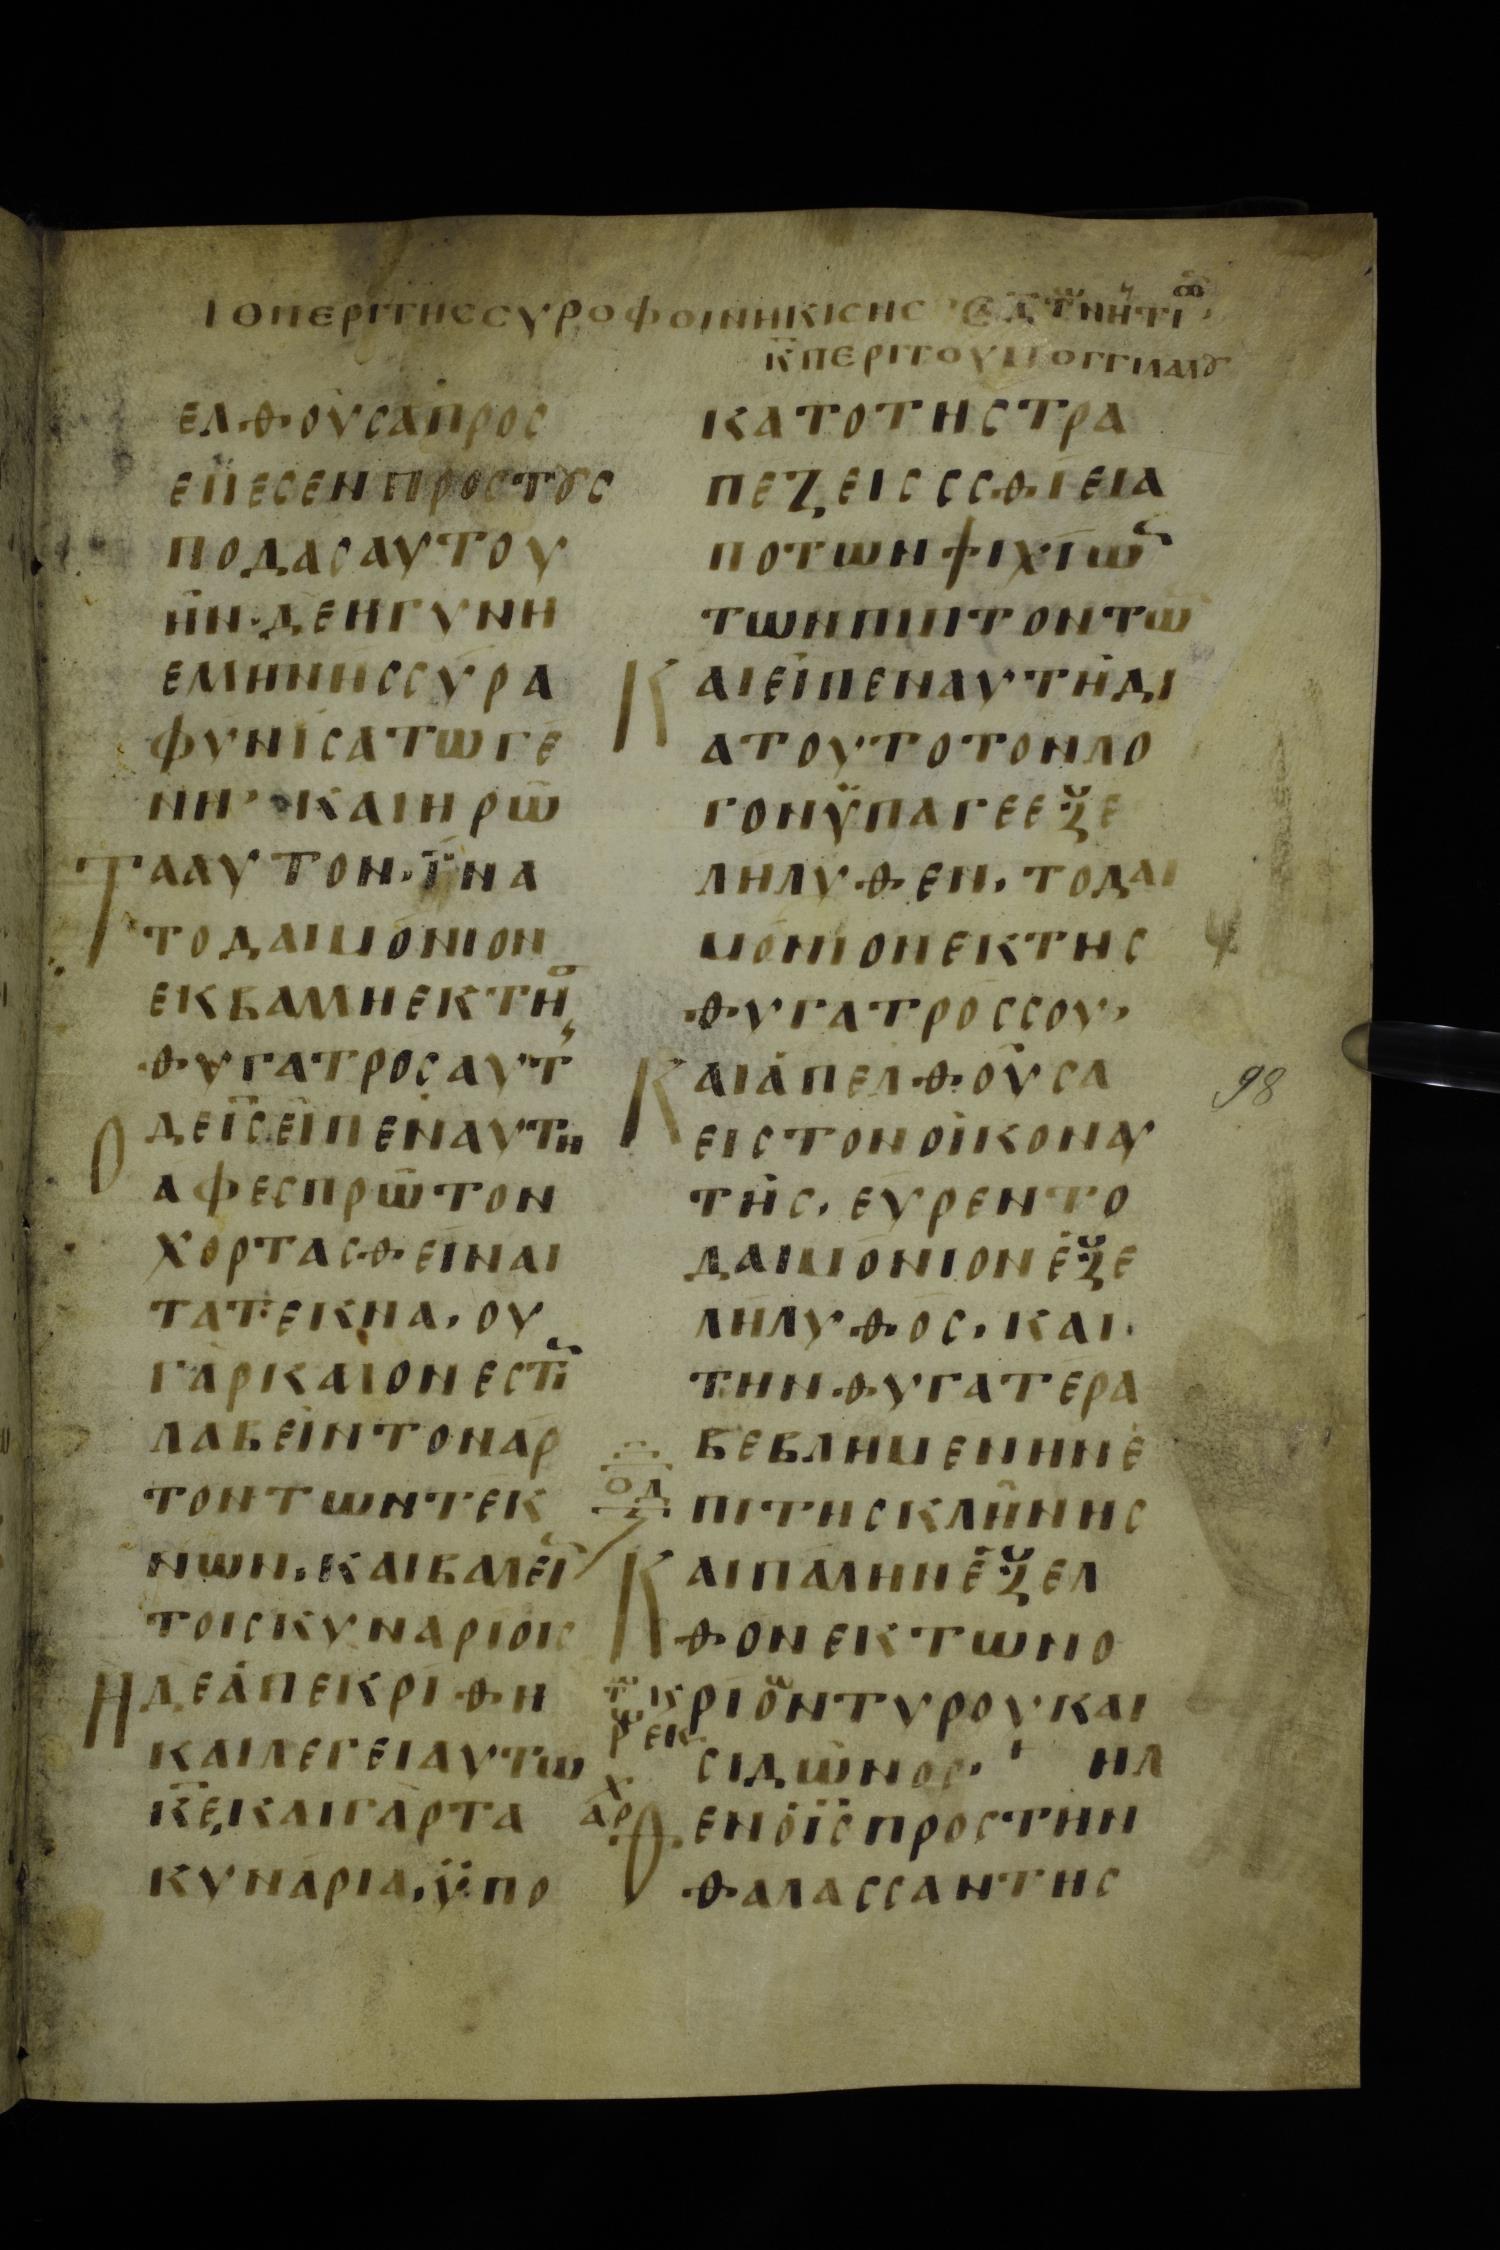 ΙΘ ΠΕΡΙ ΤΗC CΥΡΟΦΟΙΝΗΚΙCΗC
Κ̅ ΠΕΡΙ ΤΟΥ ΜΟΓΓΙΛΑΛȢ
ΕΛΘΟΥCΑ ΠΡΟC
ΕΠΕCΕΝ ΠΡΟC ΤȢC
ΠΟΔΑC ΑΥΤΟΥ
ΗΝ· ΔΕ Η ΓΥΝΗ
ΕΛΗΝΗC CΥΡΑ
ΦΥΝΙCΑ ΤΩ ΓΕ
ΝΗ, ΚΑΙ ΗΡΩ
ΤΑ ΑΥΤΟΝ, ΪΝΑ
ΤΟ ΔΑΙΜΟΝΙΟΝ
ΕΚΒΑΛΗ ΕΚ ΤΗC
ΘΥΓΑΤΡΟC ΑΥΤΗC
Ο ΔΕ Ι̅C̅ ΕΙΠΕΝ ΑΥΤΗ
ΑΦΕC ΠΡΩΤΟΝ
ΧΟΡΤΑCΘΕΙΝΑΙ
ΤΑ ΤΕΚΝΑ, ΟΥ
ΓΑΡ ΚΑΛΟΝ ΕCΤΙ
ΛΑΒΕΙΝ ΤΟΝ ΑΡ
ΤΟΝ ΤΩΝ ΤΕΚ
ΝΩΝ, ΚΑΙ ΒΑΛΕΙΝ
ΤΟΙC ΚΥΝΑΡΙΟΙC
Η ΔΕ ΑΠΕΚΡΙΘΗ
ΚΑΙ ΛΕΓΕΙ ΑΥΤΩ
Κ̅Ε̅, ΚΑΙ ΓΑΡ ΤΑ
ΚΥΝΑΡΙΑ, ΫΠΟ
ΚΑΤΟ ΤΗC ΤΡΑ
ΠΕΖΕΙC CCΘΙΕΙ Α
ΠΟ ΤΩΝ ΨΙΧΙΩΝ
ΤΩΝ ΠΙΠΤΟΝΤΩ̅
ΚΑΙ ΕΙΠΕΝ ΑΥΤΗ ΔΙ
Α ΤΟΥΤΟ ΤΟΝ ΛΟ
ΓΟΝ ΫΠΑΓΕ ΕΞΕ
ΛΗΛΥΘΕΝ, ΤΟ ΔΑΙ
ΜΟΝΙΟΝ ΕΚ ΤΗC
ΘΥΓΑΤΡΟC CΟΥ,
ΚΑΙ ΑΠΕΛΘΟΥCΑ
ΕΙC ΤΟΝ ΟΙΚΟΝ ΑΥ
ΤΗC, ΕΥΡΕΝ ΤΟ
ΔΑΙΜΟΝΙΟΝ ΕΞΕ
ΛΗΛΥΘΟC, ΚΑΙ
ΤΗΝ ΘΥΓΑΤΕΡΑ
ΒΕΒΛΗΜΕΝΗΝ Ε
ΠΙ ΤΗC ΚΛΗΝΗC
Ο̅Δ̅
ΚΑΙ ΠΑΛΗΝ ΕΞΕΛ
ΘΟΝ ΕΚ ΤΩΝ Ο
ΡΙΩΝ ΤΥΡΟΥ ΚΑΙ
CΙΔΩΝΟC, ΗΛ
ΘΕΝ Ο Ι̅C̅ ΠΡΟC ΤΗΝ
ΘΑΛΑCCΑΝ ΤΗC
98